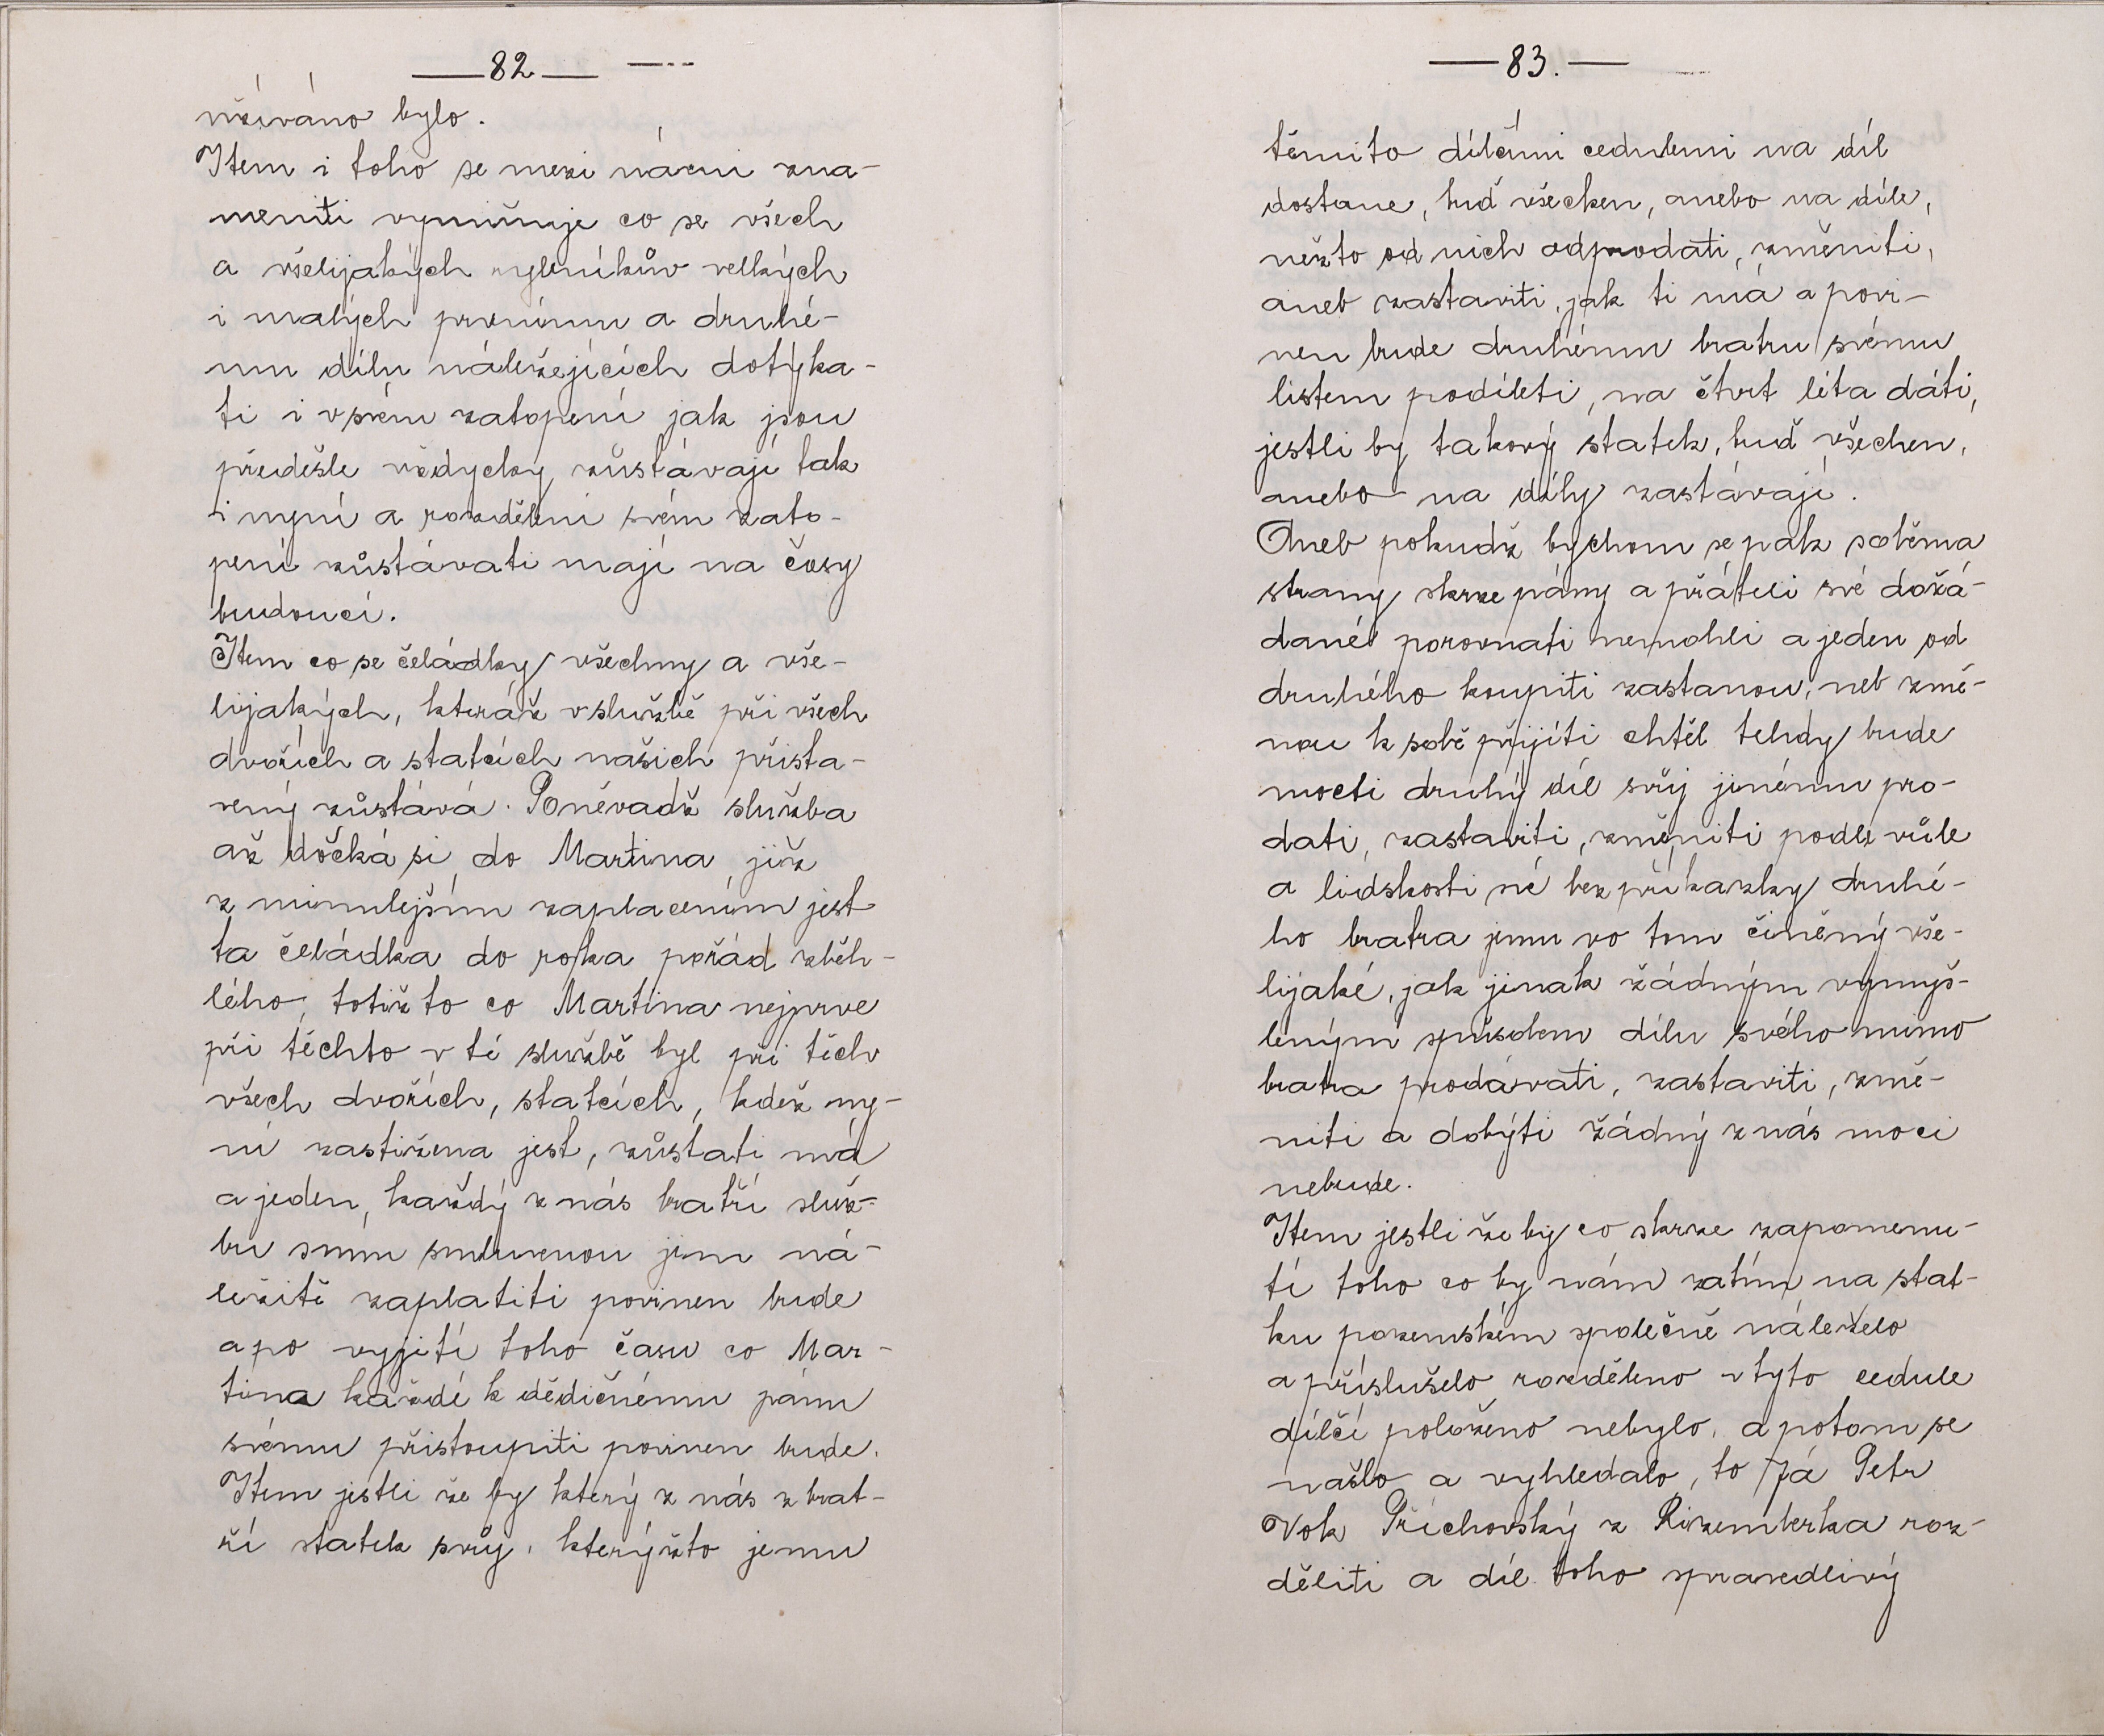 82
užíváno bylo.
Item i toho se mezi námi zna-
menitě vyminuje co se všech
a všelijakých rybníkův velkých
i malých prvnímu a druhé-
mu dílu náležejících dotýka-
ti i v svém zatopení jak jsou
předešle vždycky zůstávají tak
i nyní a rozdělení svém zato-
pení zůstávati mají na časy
budoucí.
Item co se čeládky všechny a vše-
lijakých, kteráž v službě při všech
dvořích a statcích našich přista-
vený zůstává. Poněvadž služba
až dočká si do Martina, již
z minulejším zaplacením jest
ta čeládka do roka pořád zběh-
lého, totiž to co Martina nejprve
při těchto v té službě byl při těch
všech dvořích, statcích, kdež ny-
ní zastižena jest, zůstati má
a jeden, každý z nás bratří služ-
bu smluvenou jim ná-
ležitě zaplatiti povinen bude
a po vyjití toho času co Mar-
tina každé k dědičnému pánu
svému přistoupiti povinen bude.
Item jestli že by který z nás z brat-
ří statek svůj, kterýžto jemu
83.
těmito dílčími cedulemi na díl
dostane, buď všecken, anebo na díle,
nežto od nich odprodati, změniti,
aneb zastaviti, jak ti má a povi-
nen bude druhému bratru svému
listem podíleti, na čtvrt léta dáti,
jestli by takový statek, buď všechen,
anebo na díly zastávají.
Aneb pokudž bychom se pak soběma
strany skrze pány a přáteli své dožá-
dané porovnati nemohli a jeden od
druhého koupiti zastanou, neb změ-
nou k sobě přijíti chtěl tehdy bude
mocti druhý díl svůj jinému pro-
dati, zastaviti, změniti podle vůle
a lidskosti své bez příkazky druhé-
ho bratra jemu vo tom činěný vše-
lijaké, jak jinak žádným vymyš-
leným spůsobem dílu svého mimo
bratra prodávati, zastaviti, změ-
niti a dobýti žádný z nás moci
nebude.
Item jestli že by co skrze zapomenu-
tí toho co by nám zatím na stat-
ku pozemském společně náleželo
a příslušelo rozděleno v tyto cedule
dílčí položeno nebylo, a potom se
našlo a vyhledalo, to Já Petr
Vok Příchovský z Rizemberka roz-
děliti a díl toho spravedlivý